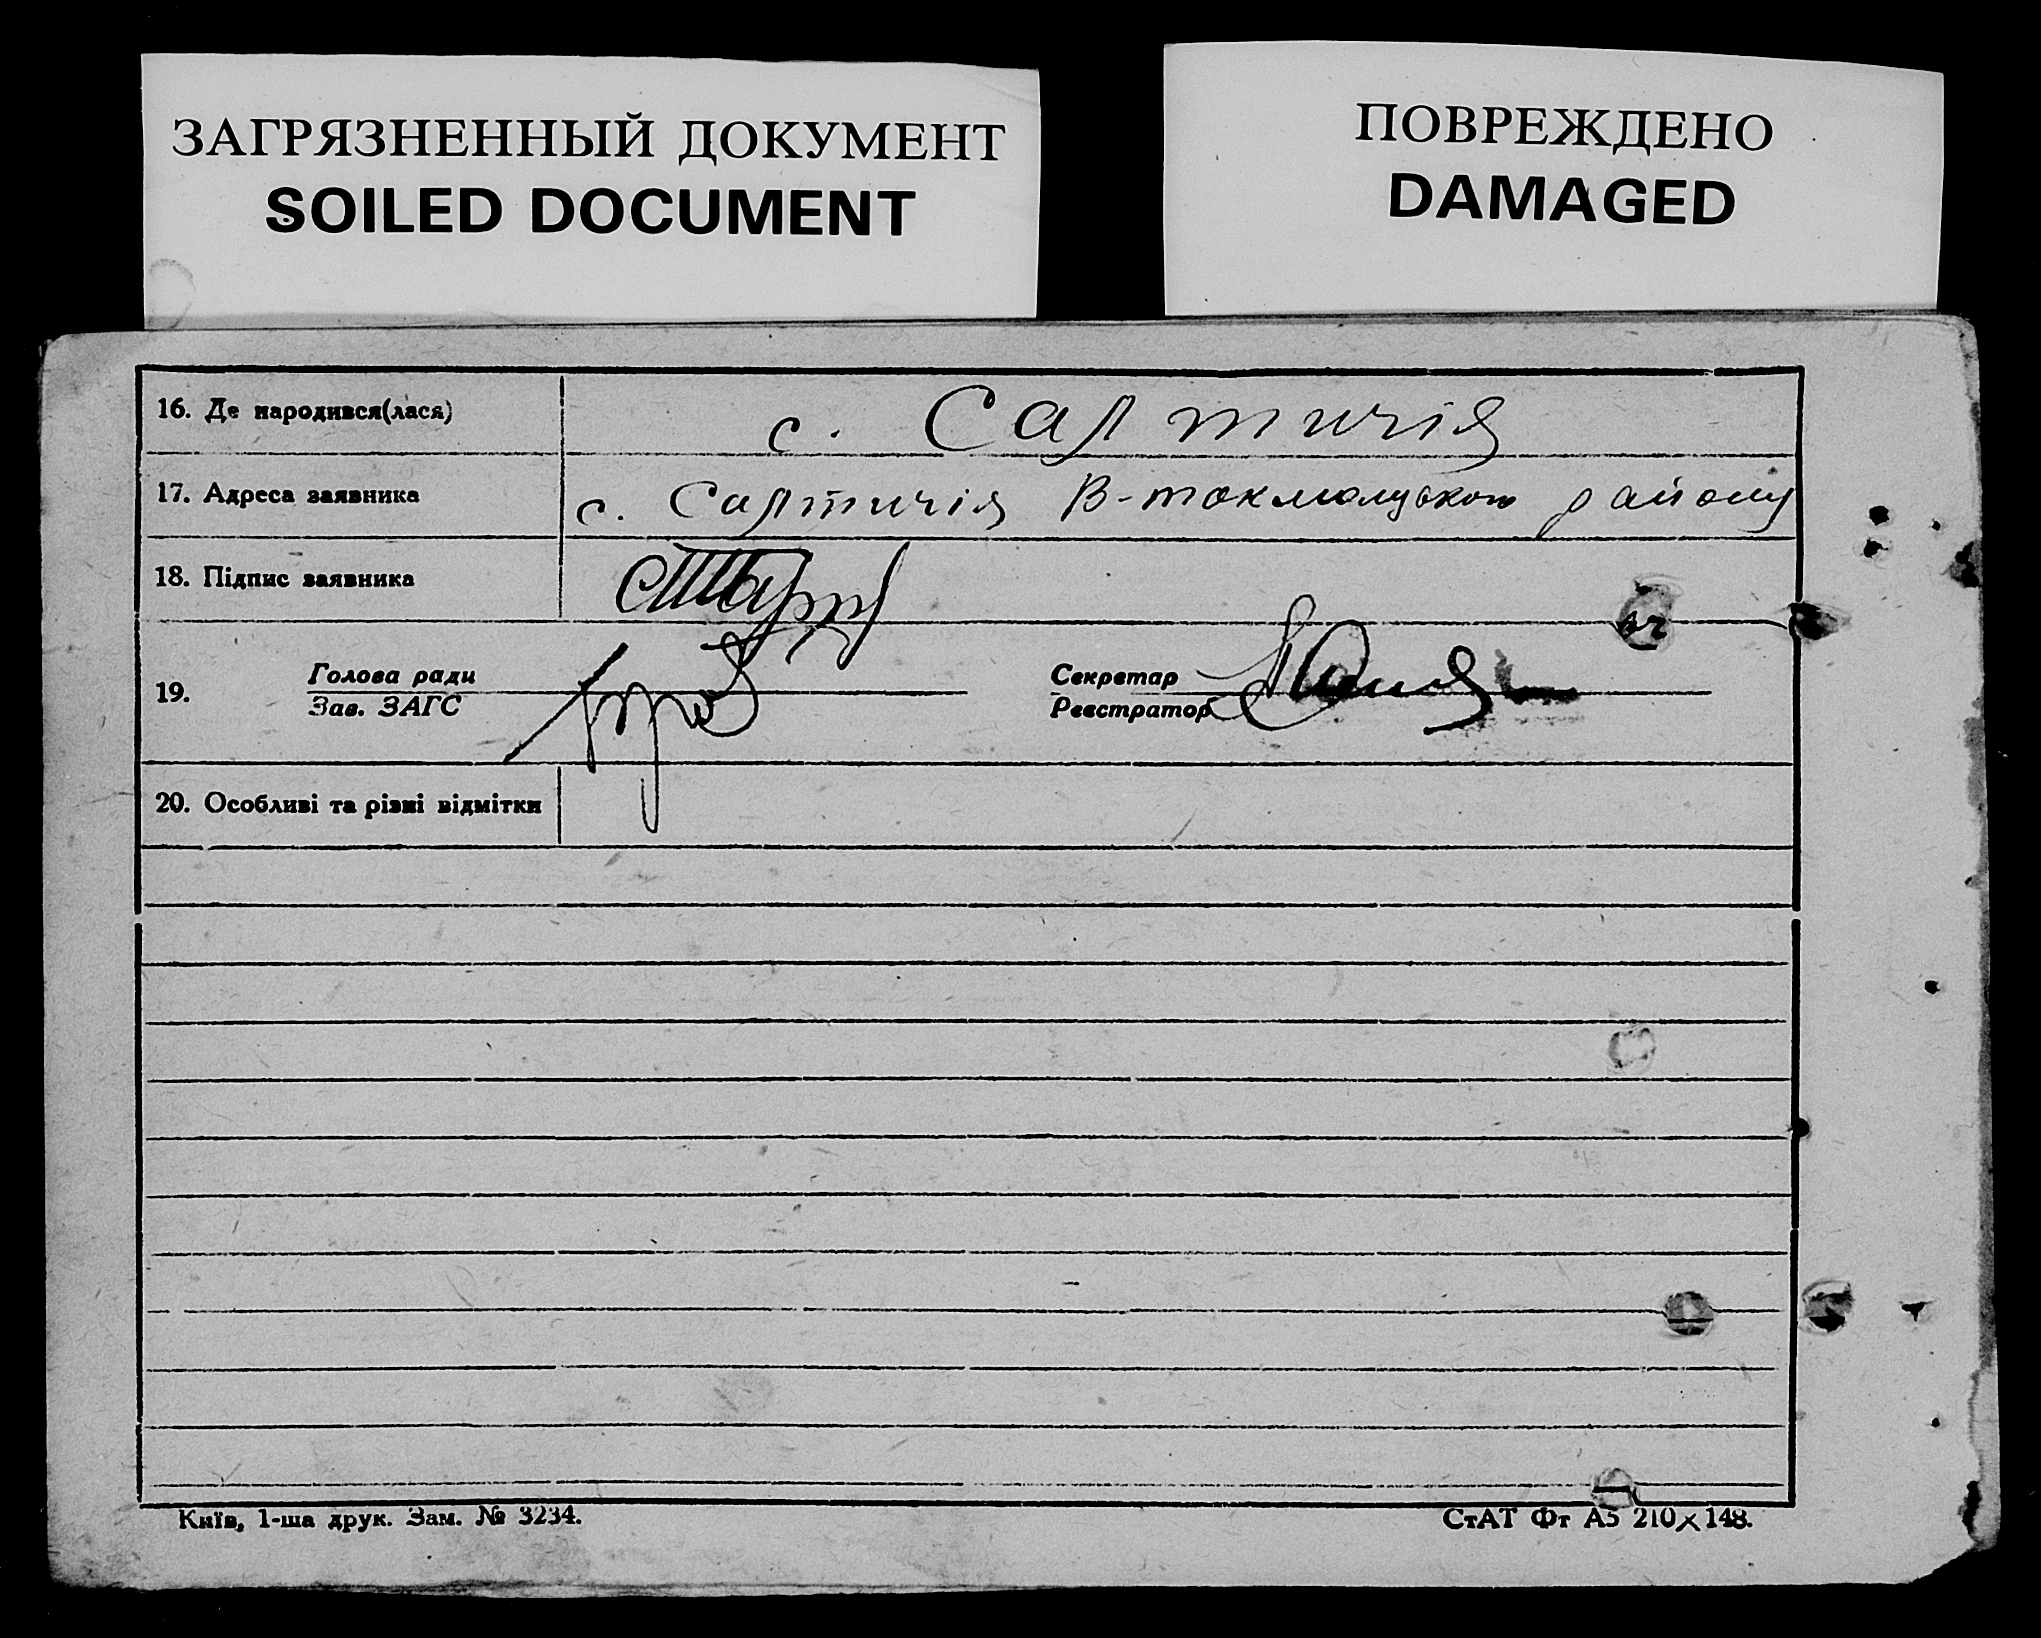 ЗАГРЯЗНЕННЫЙ ДОКУМЕНТ
SOILED DOCUMENT
ПОВРЕЖДЕНО
DAMAGED
16. Де народився(лася) с. Салтичія
17. Адреса заявника с. Салтичія В-токмацького району
18. Підпис заявника
19. Голова ради
Зав. ЗАГС
Секретар
Реєстратор
20. Особливі та різні відмітки
Київ, 1-ша друк. Зам. № 3234.
СтАТ Фт А5 210×148.